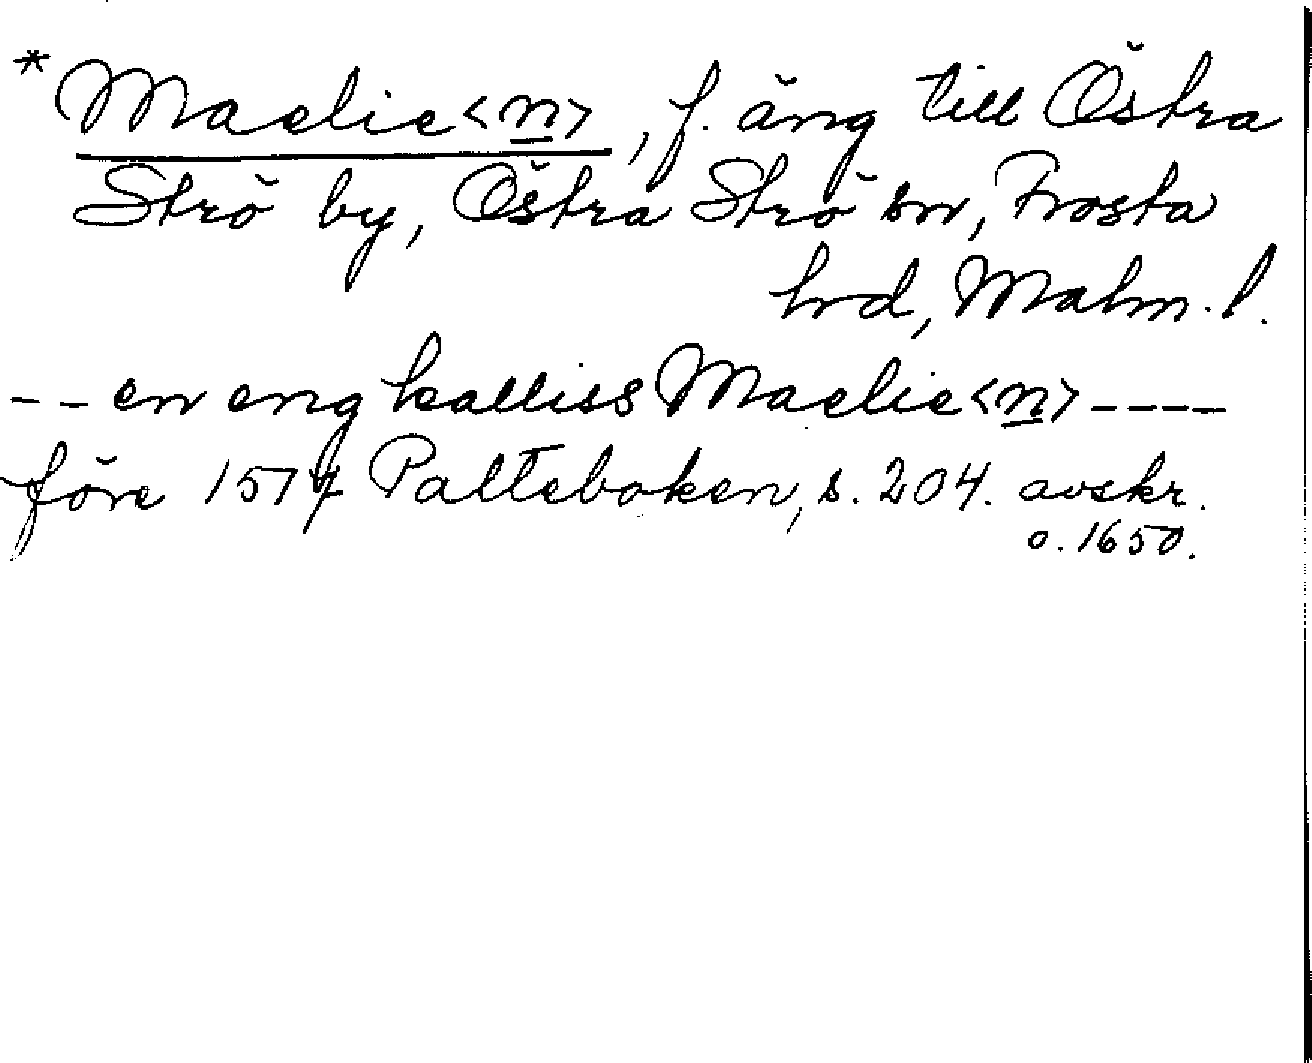 *Maelie<n>, f. äng till Östra
Strö by, Östra Strö sn, Frosta
hrd, Malm. l.
-- en eng kalliss Maelie<n> ----
före 1577 Palteboken, s. 204. avskr.
o. 1650.